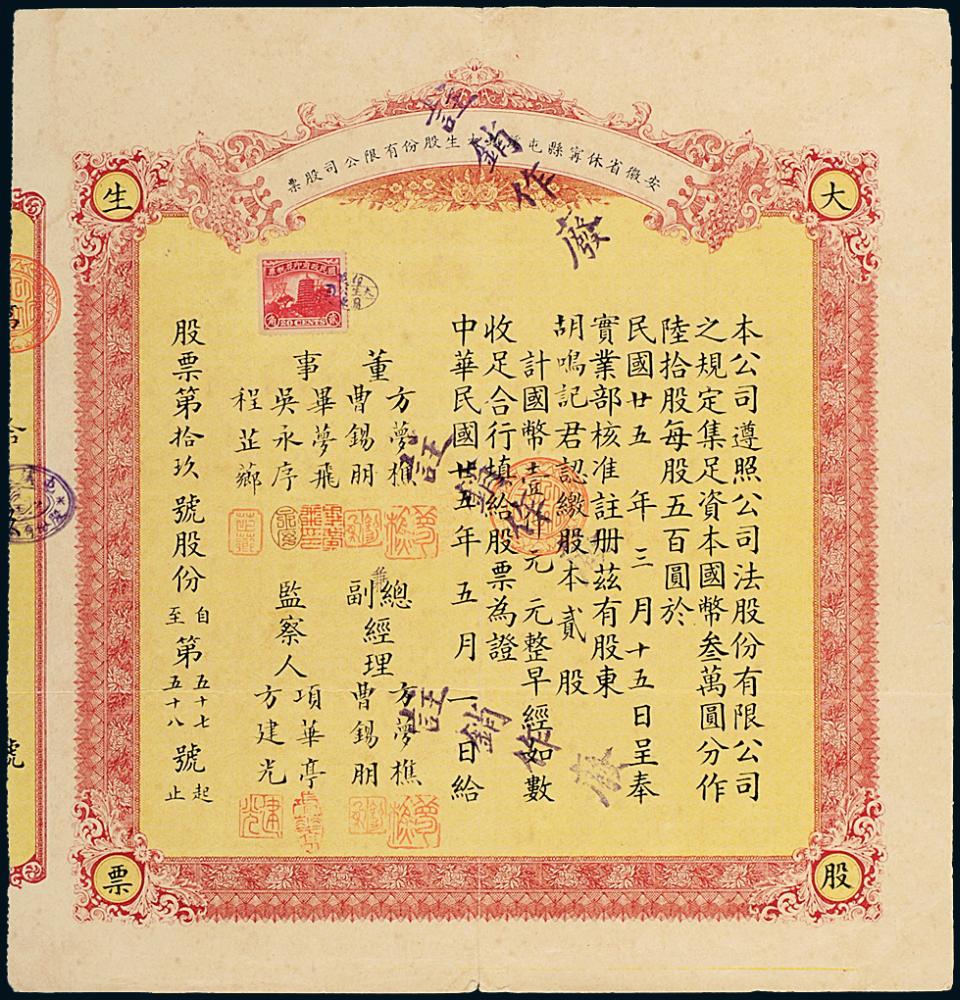 安徽省休寧縣屯大生股份有限公司股票
大生
股票
註銷作廢
本公司遵照公司法股份有限公司
之規定集足資本國幣叁萬圓分作
陸拾股每股五百圓於
民國廿五年三月十五日呈奉
實業部核准註册茲有股東
胡鳴記君認繳股本貳股
計國幣壹仟元元整早經如數
收足合行填給股票為證
中華民國廿五年五月一日給
國民政府印花税票
20 CENTS
貳角
董事
方夢樵
曹錫朋
畢夢飛
吳永序
程芷薌
總副經理
方夢樵
曹錫朋
監察人
項華亭
方建光
股票第拾玖號股份自第五十七號起
至五十八止
註銷作
註銷作廢
號